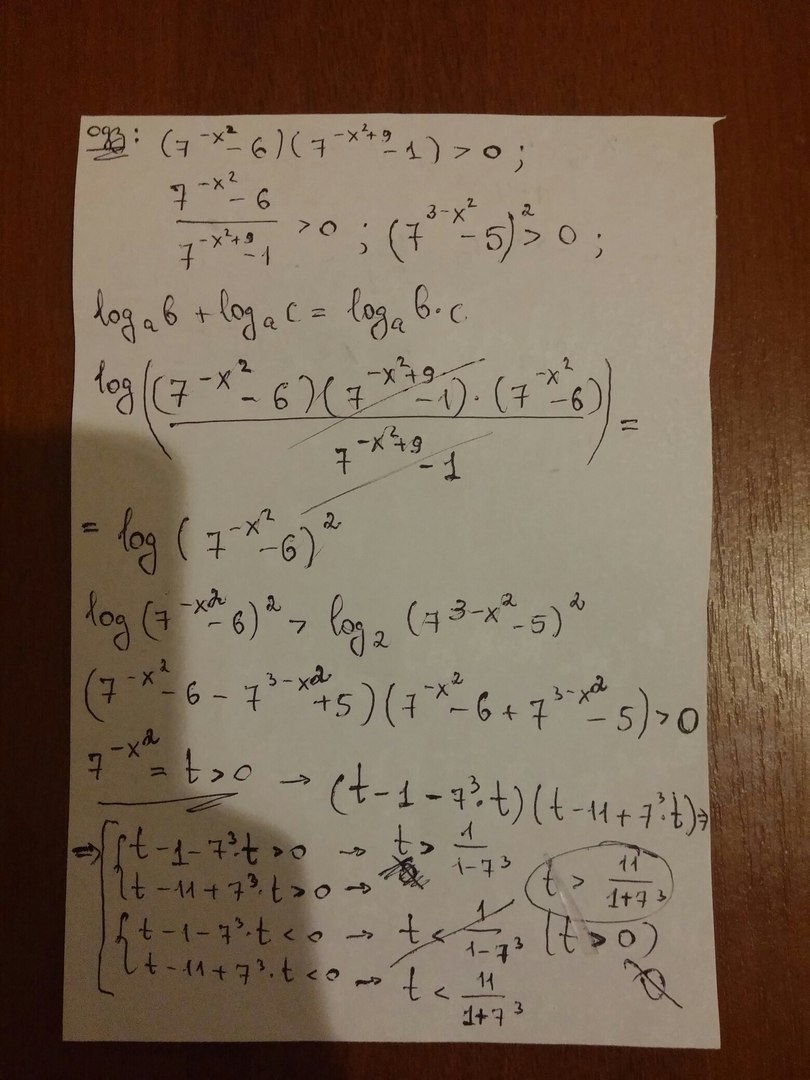 ОДЗ: (7^{-x²} - 6)(7^{-x²+9} - 1) > 0 ;
\frac{7^{-x²} - 6}{7^{-x²+9} - 1} > 0 ; (7^{3-x²} - 5)² > 0 ;
log_a b + log_a c = log_a b·c
log((7^{-x²} - 6)(7^{-x²+9} - 1)·(7^{-x²} - 6) / 7^{-x²+9} - 1) =
= log (7^{-x²} - 6)²
log (7^{-x²} - 6)² > log_2 (7^{3-x²} - 5)²
(7^{-x²} - 6 - 7^{3-x²} + 5)(7^{-x²} - 6 + 7^{3-x²} - 5) > 0
7^{-x²} = t > 0 → (t - 1 - 7³·t)(t - 11 + 7³·t) ⇒
⇒ [ { t - 1 - 7³·t > 0 → t > \frac{1}{1-7³}
t - 11 + 7³·t > 0 → t > \frac{11}{1+7³}
{ t - 1 - 7³·t < 0 → t < \frac{1}{1-7³} (t > 0)
t - 11 + 7³·t < 0 → t < \frac{11}{1+7³} ∅